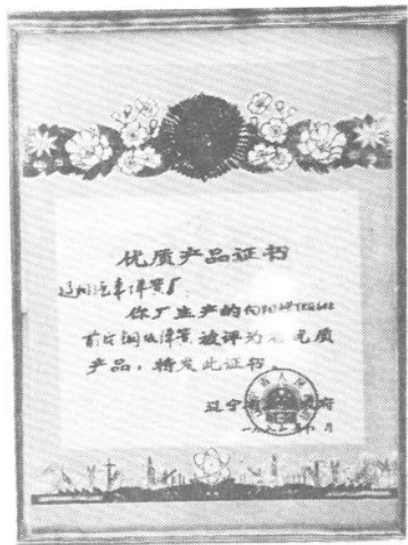 优质产品证书
辽阳汽车弹簧厂
你厂生产的向阳牌
前片钢板弹簧 被评为省优质
产品,特发此证书。
辽宁省人民政府
一九八 年 月